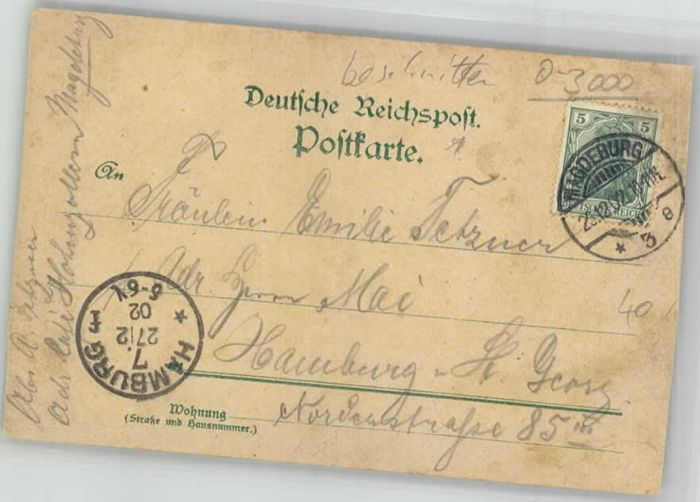 beschnitten
0-3000
Deutsche Reichspost.
Postkarte.
An
Fräulein Emilie Tetzner
Adr Herrn Mai
Hamburg - St. Georg
Norderstraße 85
Wohnung
(Straße und Hausnummer.)
Abs A. Tetzner
Adr Café Hohenzollern Magdeburg
5
MAGDEBURG
* 3 e
HAMBURG 1
* 7.
27/2
02
5-6 V.
40